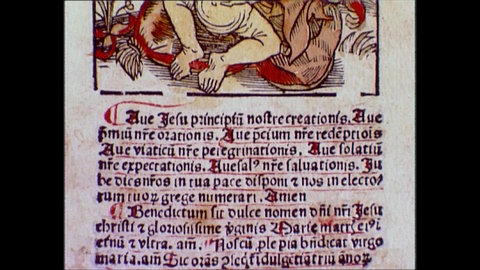 Aue Jesu principiū nostre creationis. Aue
p̄miū nr̄e orationis. Aue p̄cium nr̄e redēptiōis
Aue viaticū nr̄e peregrinationis. Aue solatiū
nr̄e expectationis. Aue sal⁹ nr̄e saluationis. Ju
be dies nr̄os in tua pace disponi ⁊ nos in electo
rum tuoꝝ grege numerari. Amen
Benedictum sit dulce nomen dn̄i nr̄i Jesu
christi ⁊ gloriosissime v̓ginis Marie matris ei⁹ ī
eternū ⁊ vltra. am̄. Nos cū ple pia bn̄dicat virgo
maria. am̄ Sic orās ⁊